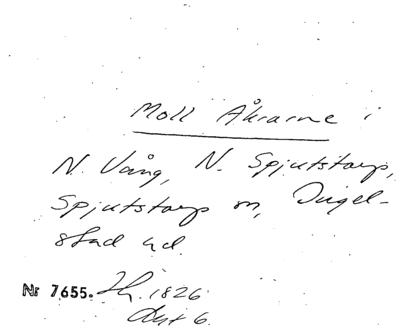 Moll Åkrarne i
N. Vång, N. Spjutstorp,
Spjutstorp sn, Ingel-
stad hd.
Nr 7655. 1826
Akt 6.